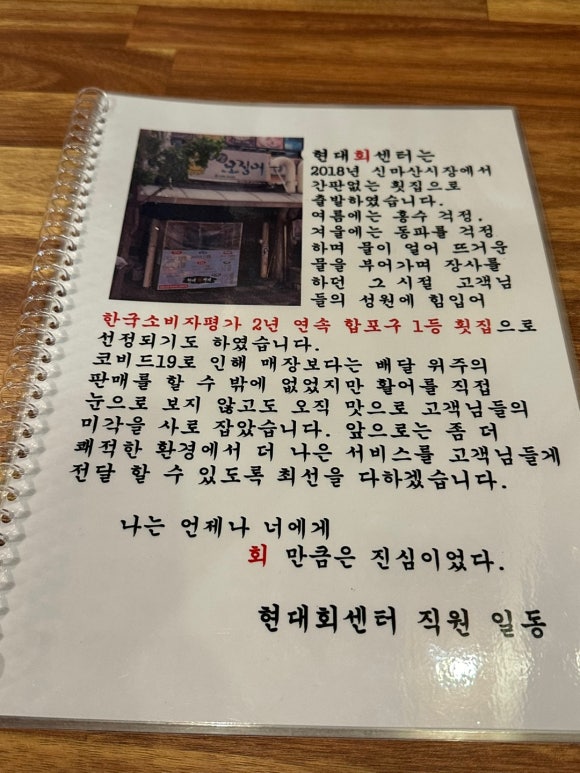 오징어
현대회센터는
2018년 신마산시장에서
간판없는 횟집으로
출발하였습니다.
여름에는 홍수 걱정,
겨울에는 동파를 걱정
하며 물이 얼어 뜨거운
물을 부어가며 장사를
하던 그 시절 고객님
들의 성원에 힘입어
한국소비자평가 2년 연속 합포구 1등 횟집으로
선정되기도 하였습니다.
코비드19로 인해 매장보다는 배달 위주의
판매를 할 수 밖에 없었지만 활어를 직접
눈으로 보지 않고도 오직 맛으로 고객님들의
미각을 사로 잡았습니다. 앞으로는 좀 더
쾌적한 환경에서 더 나은 서비스를 고객님들게
전달 할 수 있도록 최선을 다하겠습니다.
나는 언제나 너에게
회 만큼은 진심이었다.
현대회센터 직원 일동